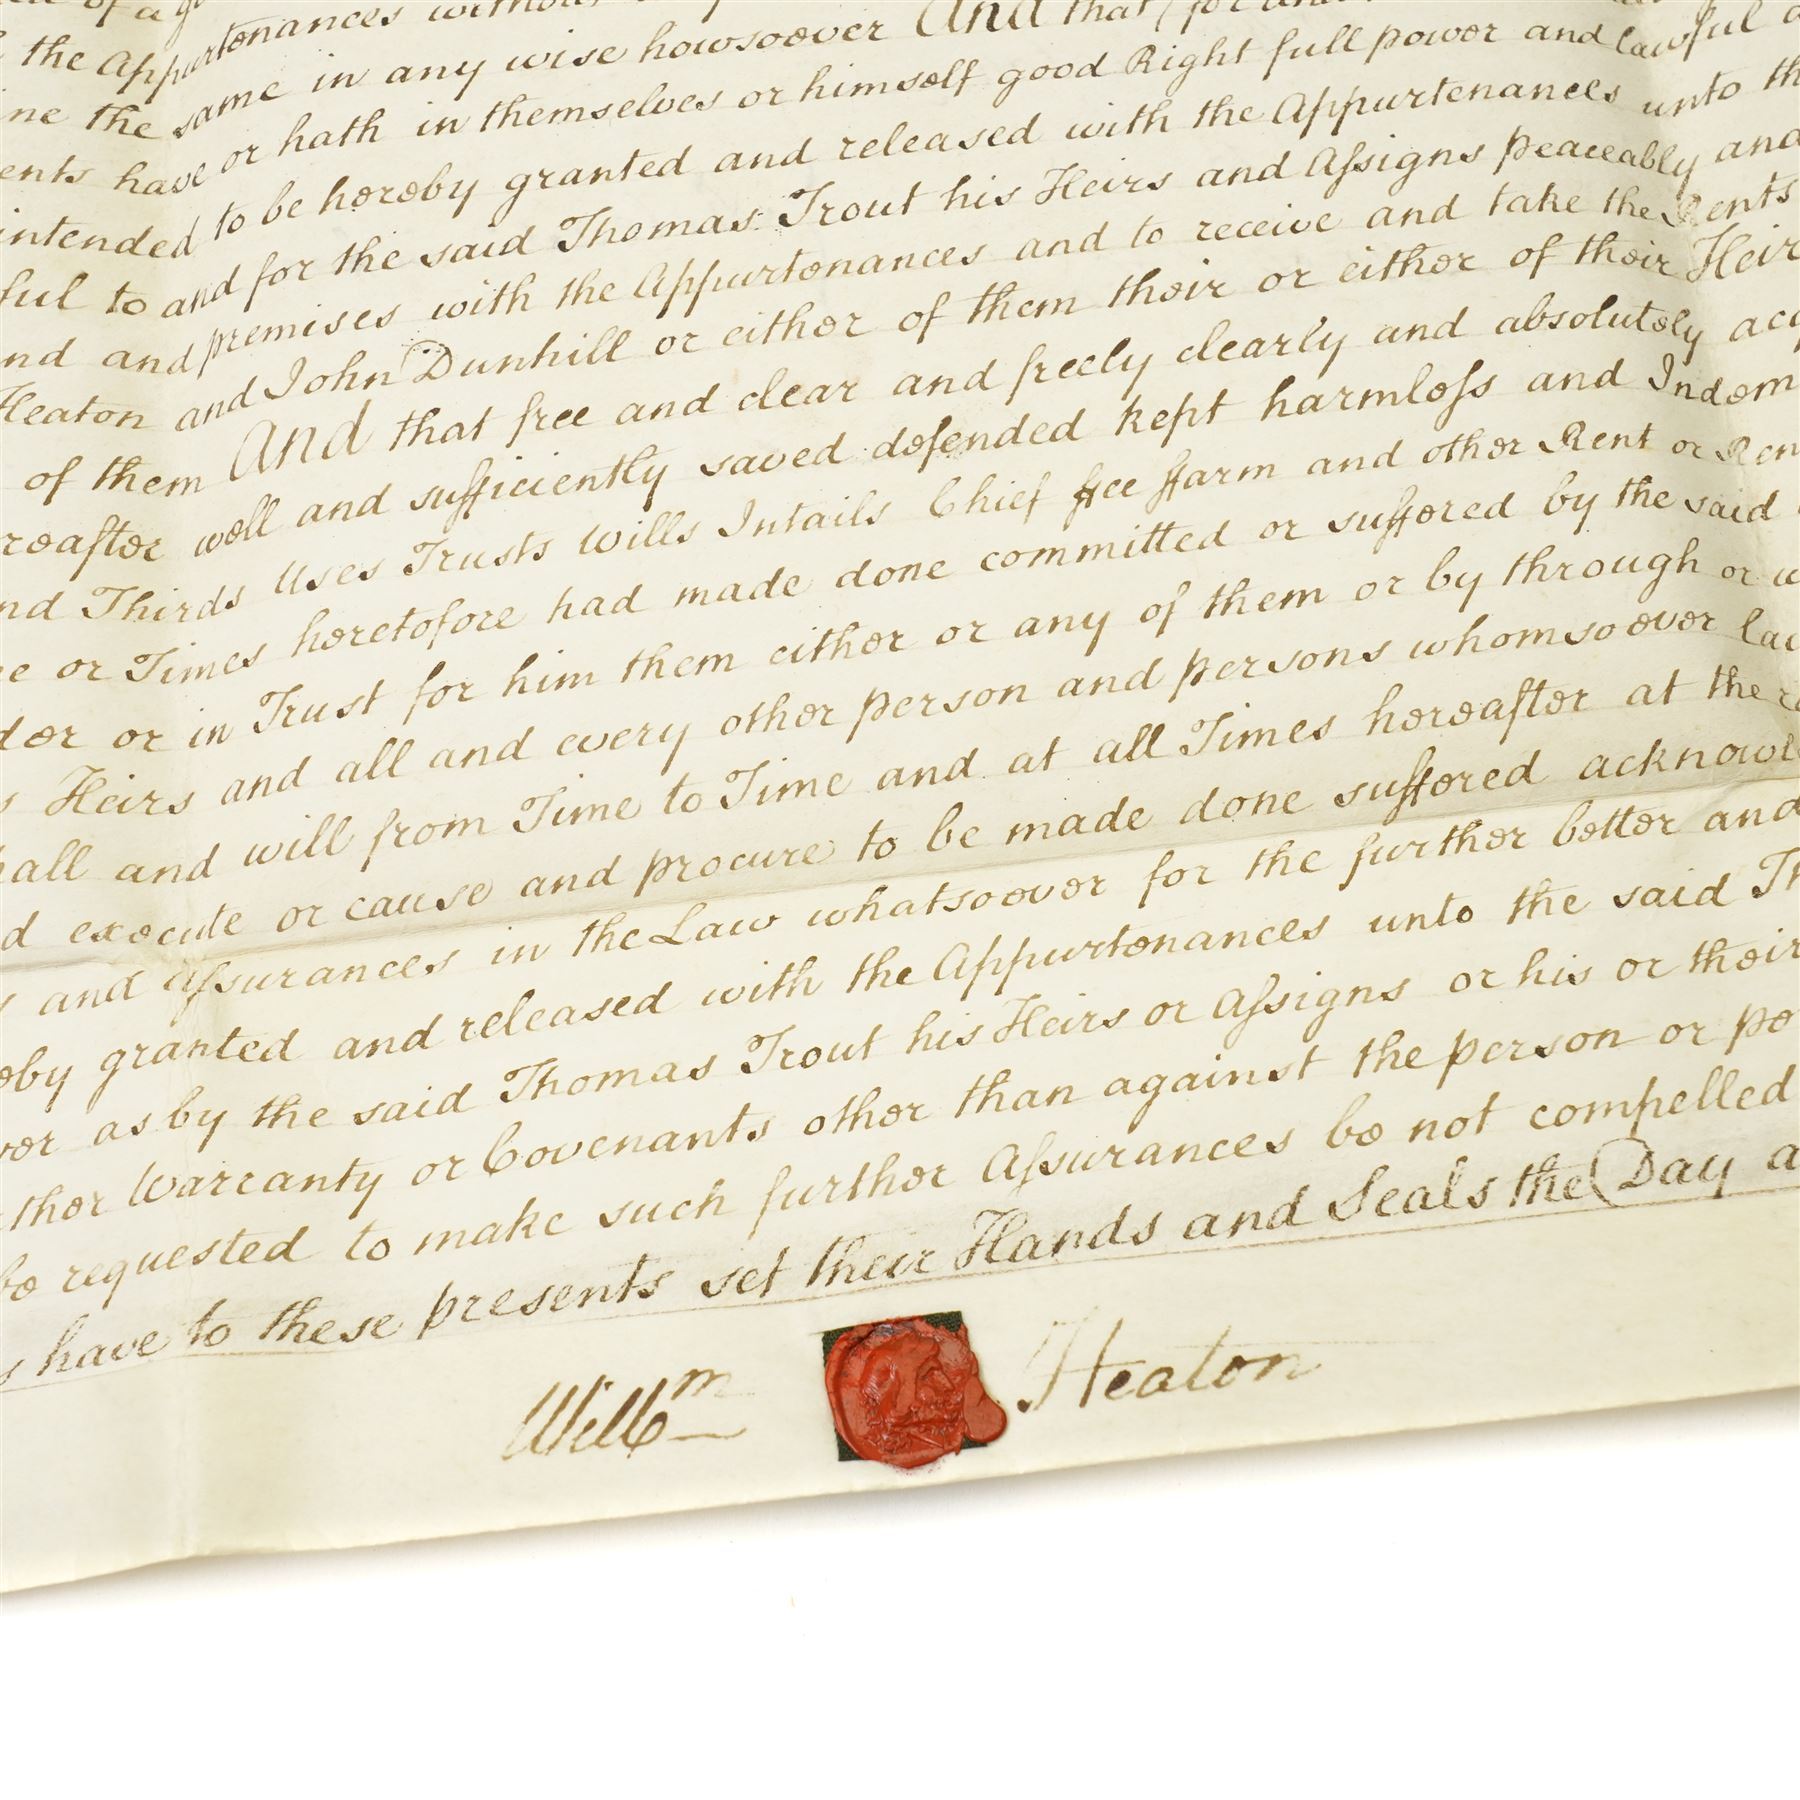 the Appurtenances
the same in any wise howsoever And that
ents have or hath in themselves or himself good Right full power and lawful
intended to be hereby granted and released with the Appurtenances unto th
ful to and for the said Thomas Trout his Heirs and Aſsigns peaceably and
nd and premises with the Appurtenances and to receive and take the Rents
Heaton and John Dunhill or either of them their or either of their Heir
of them And that free and clear and freely clearly and absolutely acq
reafter well and sufficiently saved defended kept harmleſs and Indem
nd Thirds Uses Trusts Wills Intails Chief ffee ffarm and other Rent or Ren
e or Times heretofore had made done committed or suffered by the said
der or in Trust for him them either or any of them or by through or u
s Heirs and all and every other person and persons whomsoever law
hall and will from Time to Time and at all Times hereafter at the re
d execute or cause and procure to be made done suffered acknowl
s and Aſsurances in the Law whatsoever for the further better and
eby granted and released with the Appurtenances unto the said Th
ver as by the said Thomas Trout his Heirs or Aſsigns or his or their
ther Warranty or Covenants other than against the person or pe
be requested to make such further Aſsurances be not compelled
s have to these presents set their Hands and Seals the Day a
Willm Heaton